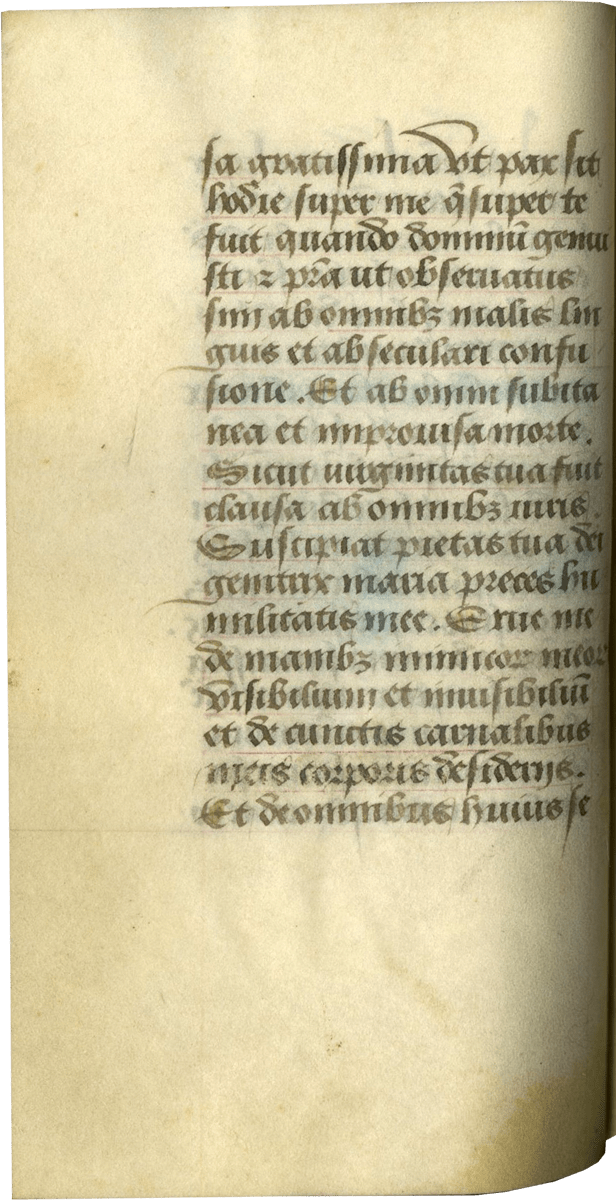 sa gratissima Vt pax sit
hodie super me q̃ super te
fuit quando dominũ genui
sti ⁊ p̃ra ut obseruatus
sim ab omnibꝫ malis lin
guis et ab seculari confu
sione. Et ab omni subita
nea et improuisa morte.
Sicut uirginitas tua fuit
clausa ab omnibꝫ uiris.
Suscipiat pietas tua dei
genitrix maria preces hu
militatis mee. Erue me
de manibꝫ inimicoꝝ meoꝝ
visibilium et inuisibiliũ
et de cunctis carnalibus
meis corporis desiderijs.
Et de omnibus huius se